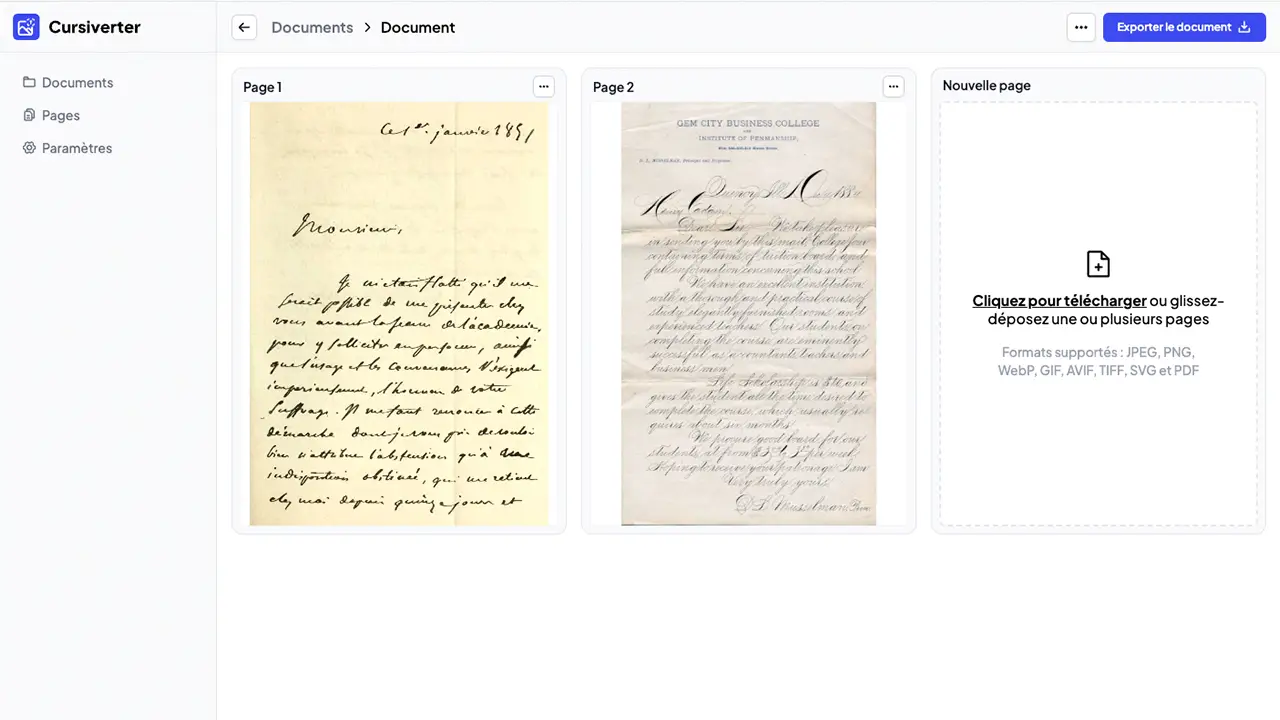 Cursiverter
Documents
Pages
Paramètres
Documents > Document
Exporter le document
Page 1
Ce 1er. janvier 1851
Monsieur,
Je m'étais flatté qu'il me
serait possible de me présenter chez
vous avant la séance de l'académie,
pour y solliciter en personne, ainsi
que l'usage et les convenances l'exigent
impérieusement, l'honneur de votre
suffrage. Il me faut renoncer à cette
démarche dont je vous prie de vouloir
bien n'attribuer l'abstention qu'à une
indisposition obstinée, qui me retient
chez moi depuis quinze jours et
Page 2
GEM CITY BUSINESS COLLEGE
AND
INSTITUTE OF PENMANSHIP,
D. L. MUSSELMAN, Principal and Proprietor.
Quincy, Ill.
Dear Sir We take pleasure
in sending you by this mail College Jour
containing terms of tuition board and
full information concerning this school
We have an excellent institution
with a thorough and practical course of
study elegantly furnished rooms and
experienced teachers. Our students on
completing the course are eminently
successful as accountants teachers and
business men.
Life Scholarship is and
gives the student all the time desired to
complete the course which usually re
quires about six months.
We procure good board for our
students at from to per week.
Hoping to receive your patronage I am
Very truly yours,
D. L. Musselman Prin
Nouvelle page
Cliquez pour télécharger ou glissez-
déposez une ou plusieurs pages
Formats supportés : JPEG, PNG,
WebP, GIF, AVIF, TIFF, SVG et PDF